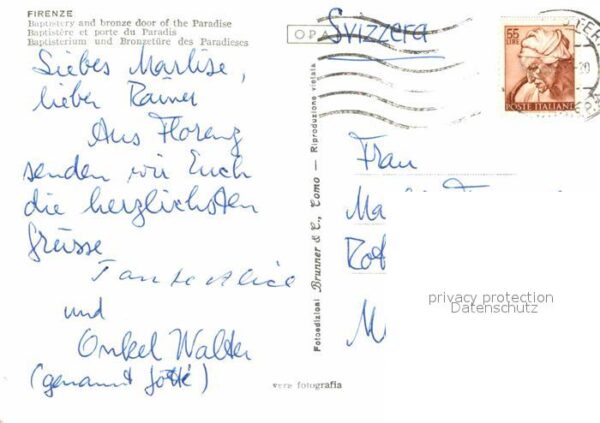 FIRENZE
Baptistery and bronze door of the Paradise
Baptistère et porte du Paradis
Baptisterium und Bronzetüre des Paradieses
Liebes Marlise,
lieber Rainer
Aus Florenz
senden wir Euch
die herzlichsten
Grüsse
Tante Alice
und
Onkel Walter
(genannt
Fotoedizioni Brunner & C., Como — Riproduzione vietata
vera fotografia
OPA
Svizzera
55
LIRE
POSTE ITALIANE
Frau
Ma
Rot
M
privacy protection
Datenschutz